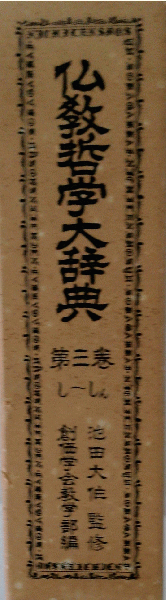 仏教哲学大辞典
第三巻
し〜しん
池田大作監修
創価学会教学部編